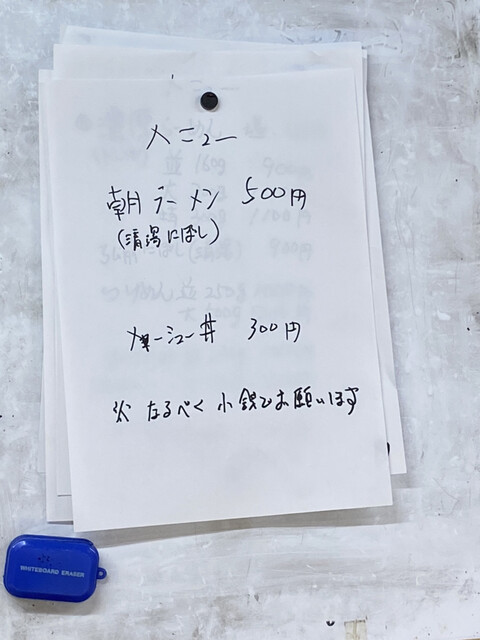 メニュー
朝ラーメン 500円
(清湯にぼし)
チャーシュー丼 300円
※ なるべく小銭でお願いします
WHITEBOARD ERASER